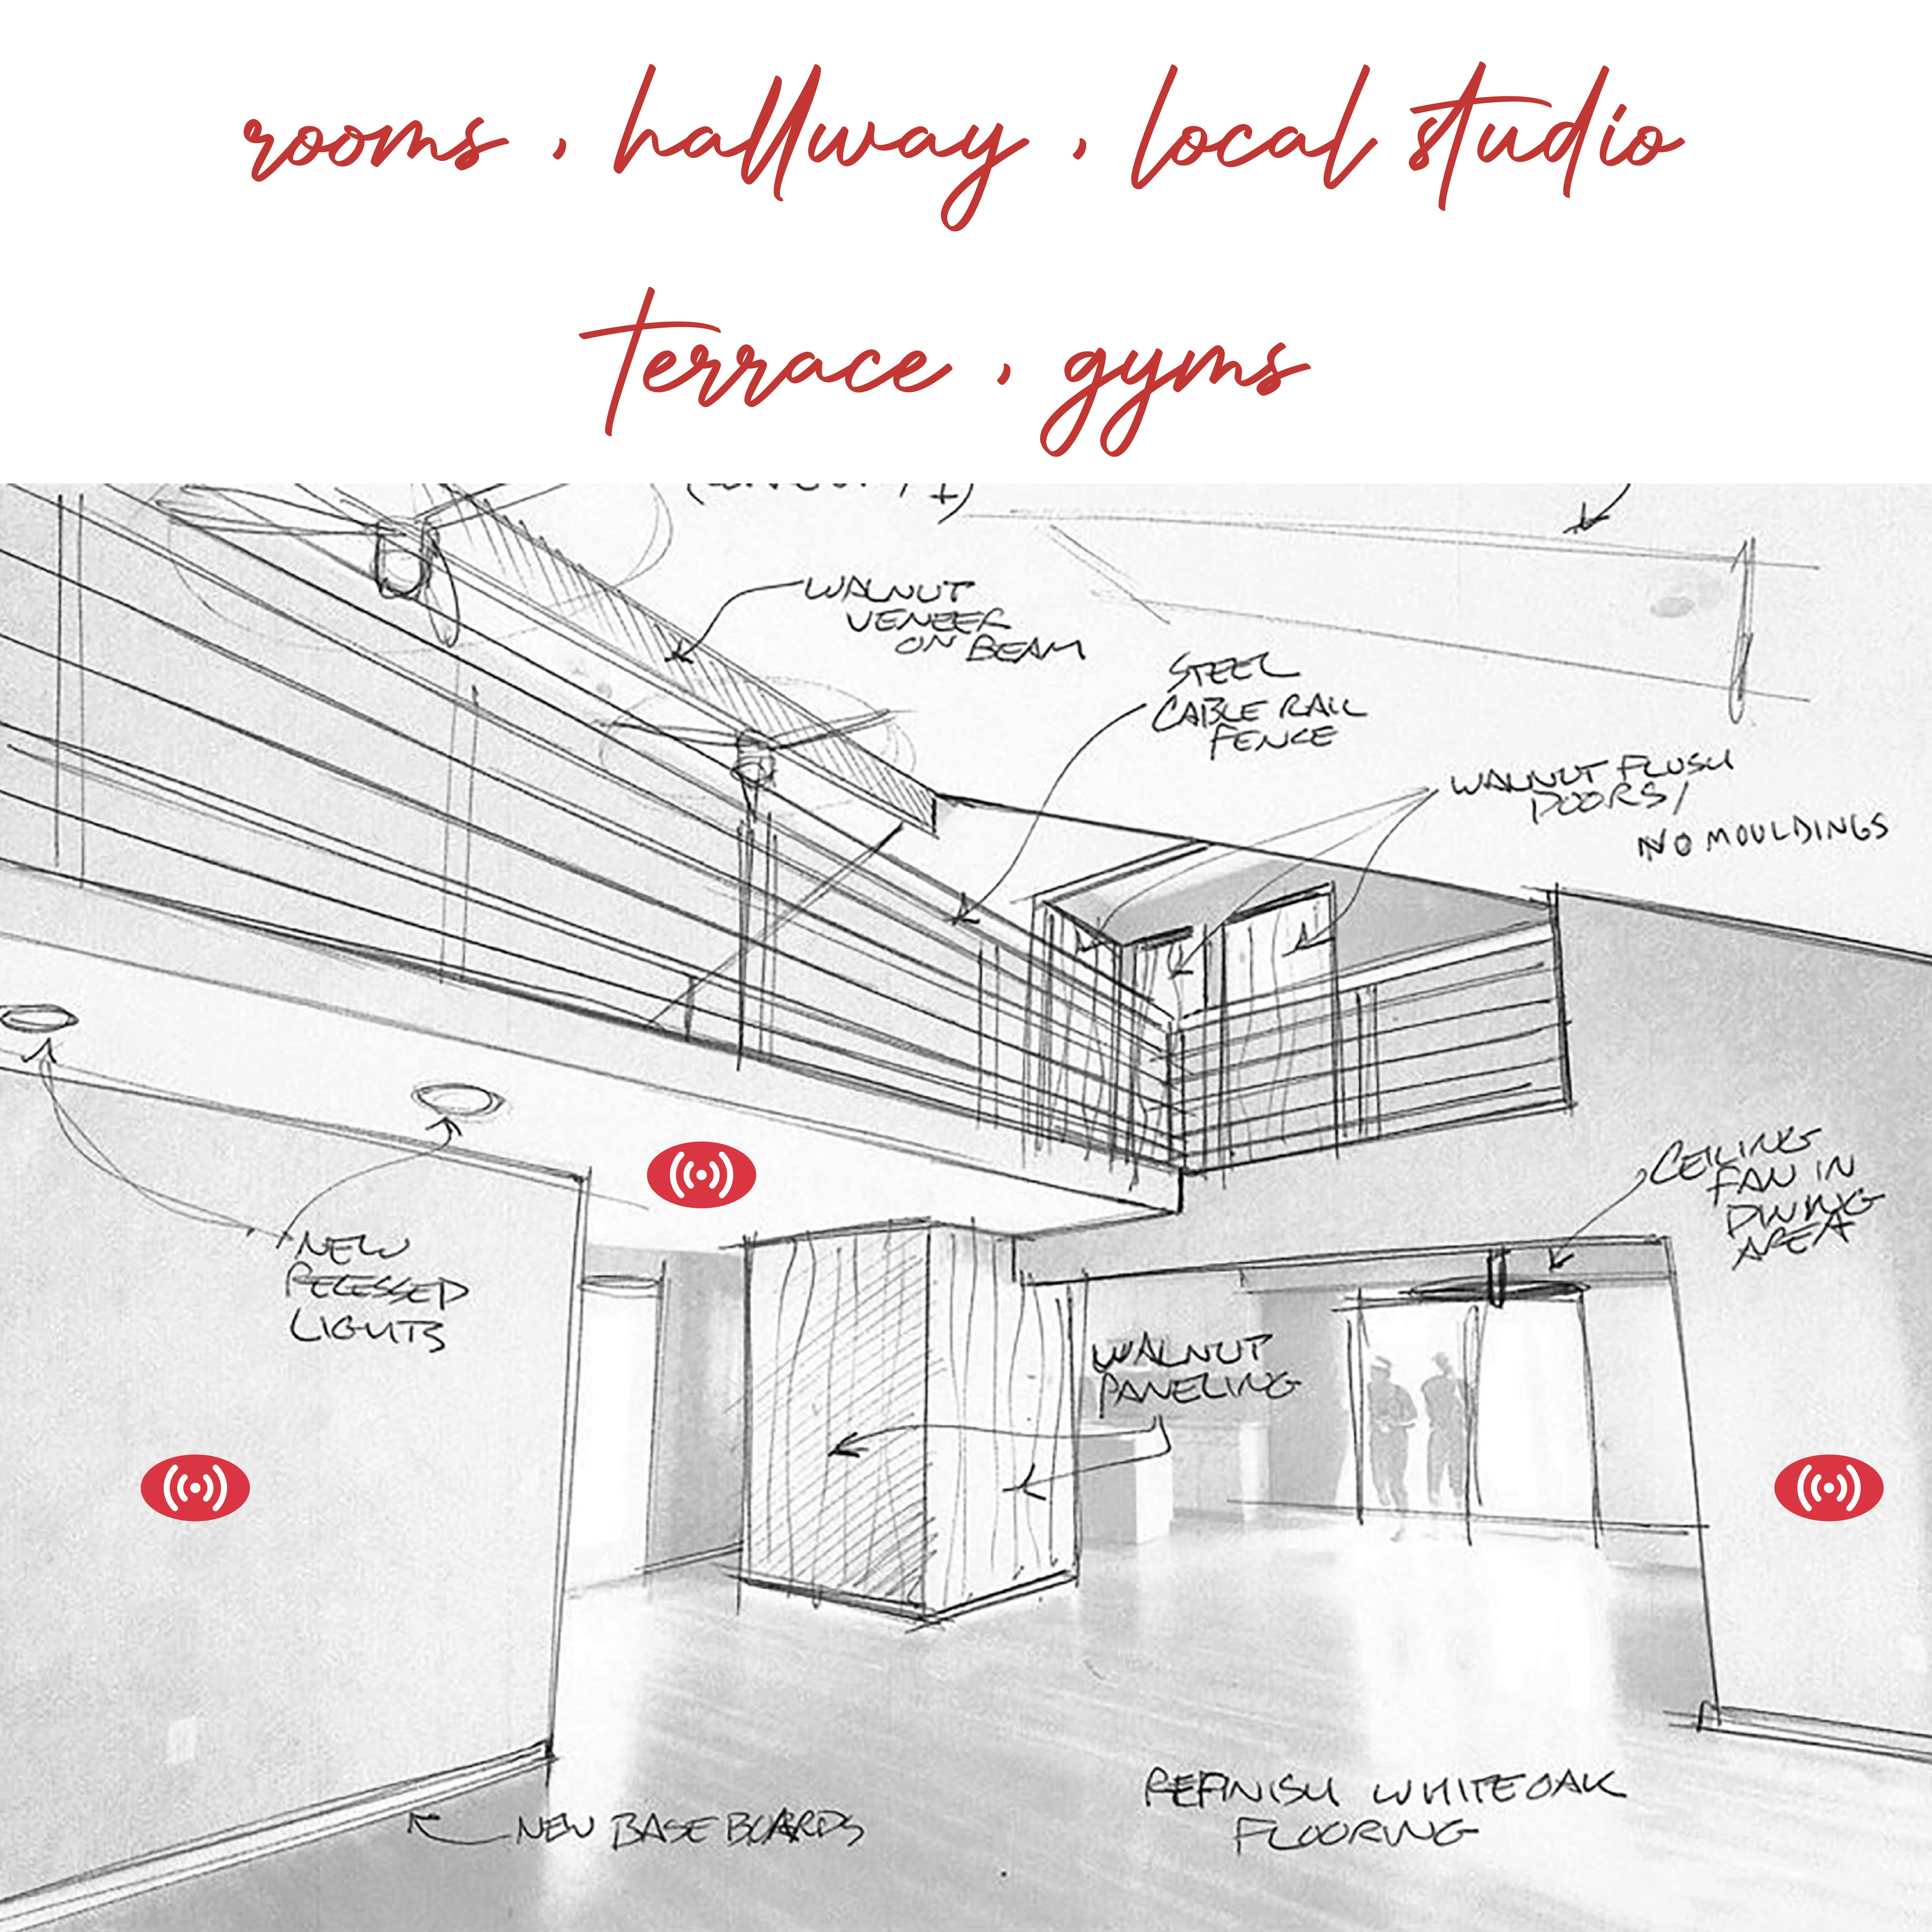 rooms, hallway, local studio
terrace, gyms
WALNUT
VENEER
ON BEAM
STEEL
CABLE RAIL
FENCE
WALNUT FLUSH
DOORS/
NO MOULDINGS
CEILING
FAN IN
DINING
AREA
NEW
RECESSED
LIGHTS
WALNUT
PANELING
REFINISH WHITE OAK
FLOORING
NEW BASE BOARDS